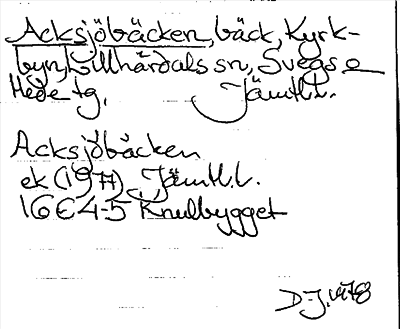 Acksjöbäcken, bäck, Kyrk-
byn, Lillhärdals sn, Svegs o
Hede tg, Jämtl.l.
Acksjöbäcken
ek (1977), Jämtl.l.
16E4-5 Knulbygget
D-J. 1978